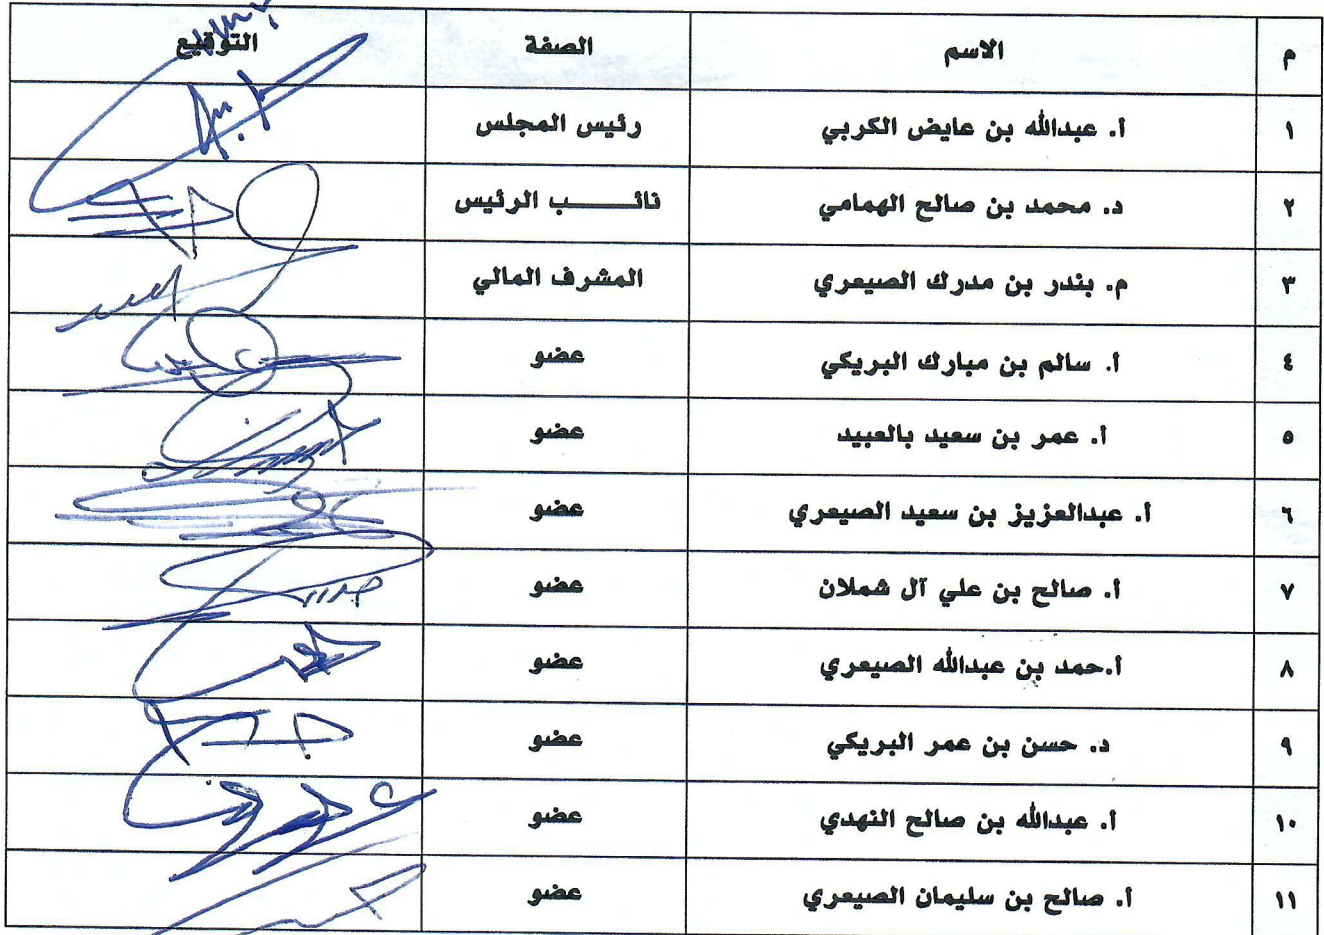 م الاسم الصفة التوقيع
١ أ. عبدالله بن عايض الكربي رئيس المجلس
٢ د. محمد بن صالح الهمامي نائـــــب الرئيس
٣ م. بندر بن مدرك الصيعري المشرف المالي
٤ أ. سالم بن مبارك البريكي عضو
٥ أ. عمر بن سعيد بالعبيد عضو
٦ أ. عبدالعزيز بن سعيد الصيعري عضو
٧ أ. صالح بن علي آل شملان عضو
٨ أ.حمد بن عبدالله الصيعري عضو
٩ د. حسن بن عمر البريكي عضو
١٠ أ. عبدالله بن صالح النهدي عضو
١١ أ. صالح بن سليمان الصيعري عضو